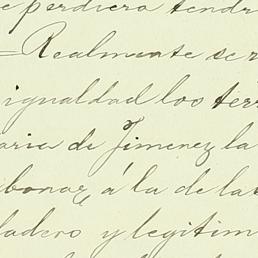 e perdiera tendr
= Realmente se r
igualdad los terr
aria de Jimenez la
bonar, á la de la
ladero y legitim